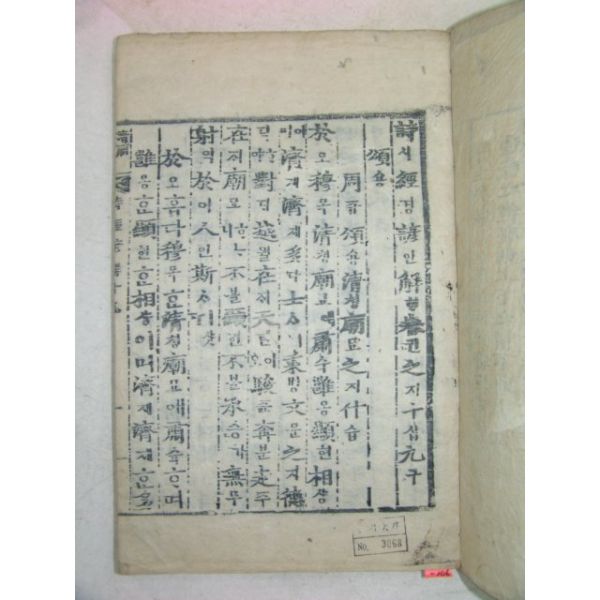 詩시經경諺언解ᄒᆡ卷권之지十십九구
頌숑
周쥬頌숑淸쳥廟묘之지什습
於오穆목淸쳥廟묘애肅슉雝옹顯현相샹
濟제濟제多다士ᄉᆞ 秉병文문之지德덕
對ᄃᆡ越월在ᄌᆡ天텬 駿쥰奔분走주
在ᄌᆡ廟묘 不불顯현不불承승 無무
射역於어人인斯ᄉᆞ
於오홉다穆목ᄒᆞᆫ淸쳥廟묘애肅슉ᄒᆞ며
雝옹ᄒᆞᆫ顯현ᄒᆞᆫ相샹이며濟제濟제ᄒᆞᆫ
No. 3068